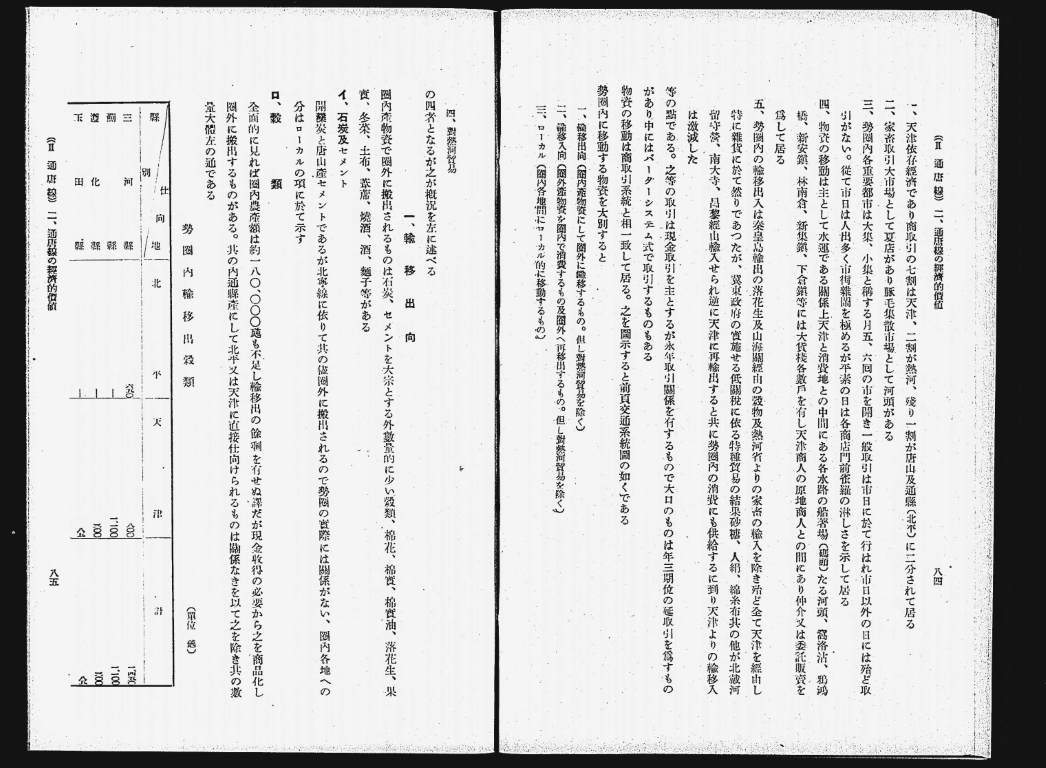 (Ⅱ 通唐線) 二、通唐線の經濟的價値
八四
一、天津依存經濟であり商取引の七割は天津、二割が熱河、殘り一割が唐山及通縣(北平)に二分されて居る
二、家畜取引大市場として夏店があり豚毛集散市場として河頭がある
三、勢圈內各重要都市は大集、小集と稱する月五、六回の市を開き一般取引は市日に於て行はれ市日以外の日には殆ど取
引がない。從て市日は人出多く市街雜鬧を極めるが平素の日は各商店門前雀羅の淋しさを示して居る
四、物資の移動は主として水運である關係上天津と消費地との中間にある各水路の船著場(碼頭)たる河頭、窩洛沽、鴉鴻
橋、新安鎭、林南倉、新集鎭、下倉鎭等には大貨棧各數戶を有し天津商人の原地商人との間にあり仲介又は委託販賣を
爲して居る
五、勢圈內の輸移出入は秦皇島輸出の落花生及山海關經由の穀物及熱河省よりの家畜の輸入を除き殆ど全て天津を經由し
特に雜貨に於て然りであつたが、冀東政府の實施せる低關稅に依る特種貿易の結果砂糖、人絹、綿糸布其の他が北戴河
留守營、南大寺、昌黎經由輸入せられ逆に天津に再輸出すると共に勢圈內の消費にも供給するに到り天津よりの輸移入
は激減した
等の點である。之等の取引は現金取引を主とするが永年取引關係を有するもので大口のものは年三期位の延取引を爲すもの
があり中にはバーターシステム式で取引するものもある
物資の移動は商取引系統と相一致して居る。之を圖示すると前頁交通系統圖の如くである
勢圈內に移動する物資を大別すると
一、輸移出向(圈內產物資にして圈外に輸移するもの。但し對熱河貿易を除く)
二、輸移入向(圈外產物資を圈內で消費するもの及圈外へ再移出するもの。但し對熱河貿易を除く)
三、ローカル(圈內各地間にローカル的に移動するもの)
四、對熱河貿易
の四者となるが之が槪況を左に述べる
一、輸移出向
圈內產物資で圈外に搬出されるものは石炭、セメントを大宗とする外數量的に少い穀類、棉花、棉實、棉實油、落花生、果
實、冬菜、土布、葦席、燒酒、酒、麵子等がある
イ、石炭及セメント
開灤炭と唐山產セメントであるが北寧線に依りて其の儘圈外に搬出されるので勢圈の實際には關係がない、圈內各地への
分はローカルの項に於て示す
ロ、穀類
全面的に見れば圈內農產額は約一八〇、〇〇〇瓲も不足し輸移出の餘剩を有せぬ譯だが現金收得の必要から之を商品化し
圈外に搬出するものがある。其の內通縣產にして北平又は天津に直接仕向けられるものは關係なきを以て之を除き其の數
量大體左の通である
勢圈內輸移出穀類
(單位 瓲)
縣別 仕向地 北平 天津 計
三河縣
薊縣 — 1'100 1'100
遵化縣 — 100 100
玉田縣 —
(Ⅱ 通唐線) 二、通唐線の經濟的價値
八五